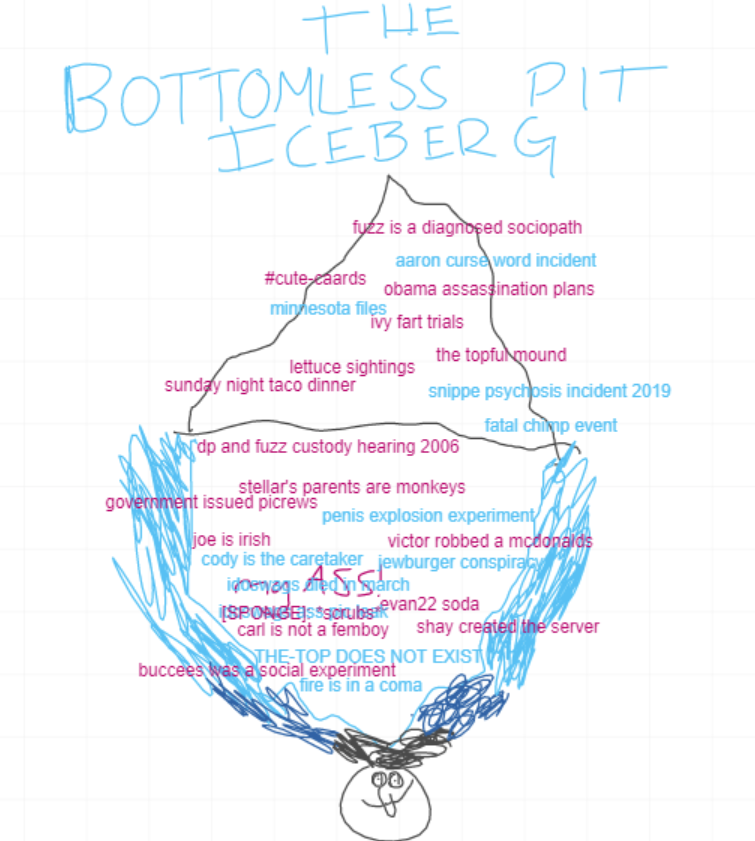 THE
BOTTOMLESS PIT
ICEBERG
fuzz is a diagnosed sociopath
aaron curse word incident
#cute-caards
obama assassination plans
minnesota files
ivy fart trials
the topful mound
lettuce sightings
sunday night taco dinner
snippe psychosis incident 2019
fatal chimp event
dp and fuzz custody hearing 2006
stellar's parents are monkeys
government issued picrews
penis explosion experiment
joe is irish
victor robbed a mcdonalds
cody is the caretaker
jewburger conspiracy
idoswags died in march
my ASS!
evan22 soda
[SPONGE]: *scrubs*
ass pic leak
carl is not a femboy
shay created the server
THE-TOP DOES NOT EXIST
buccees was a social experiment
fire is in a coma